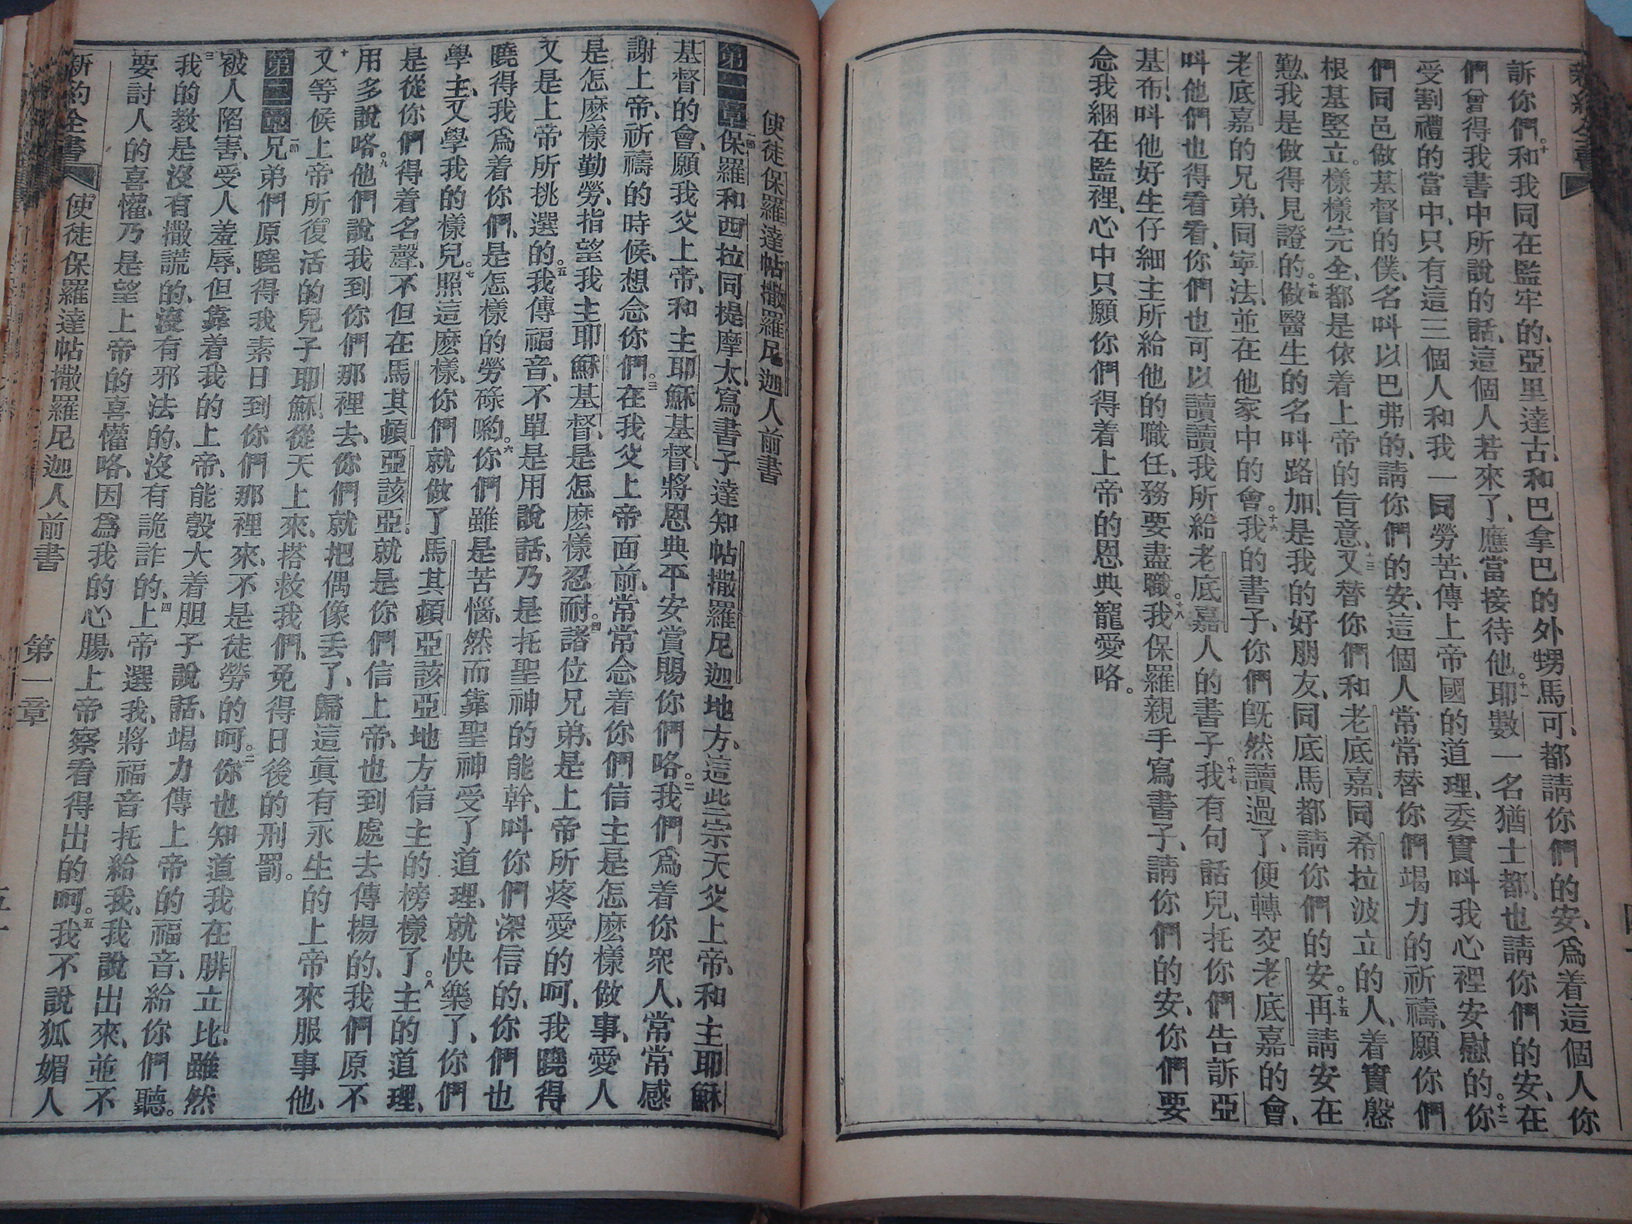 訴你們、十和我同在監牢的、亞里達古、和巴拿巴的外甥馬可、都請你們的安、爲着這個人你
們曾得我書中所說的話、這個人若來了、應當接待他。十一耶數一名猶士都、也請你們的安、在
受割禮的當中、只有這三個人和我一同勞苦、傳上帝國的道理、委實呌我心裡安慰的。十二你
們同邑做基督的僕、名呌以巴弗的、請你們的安、這個人常常替你們竭力的祈禱、願你們
根基竪立、樣樣完全、都是依着上帝的旨意、十三又替你們和老底嘉、同希拉波立的人、着實慇
懃、我是做得見證的。十四做醫生的名呌路加、是我的好朋友、同底馬都請你們的安。十五再請安在
老底嘉的兄弟、同寧法、並在他家中的會。十六我的書子、你們旣然讀過了、便轉交老底嘉的會、
呌他們也得看看、你們也可以讀讀我所給老底嘉人的書子。十七我有句話兒、托你們告訴亞
基布、呌他好生仔細主所給他的職任、務要盡職。十八我保羅親手寫書子、請你們的安、你們要
念我綑在監裡、心中只願你們得着上帝的恩典寵愛咯。
使徒保羅達帖撒羅尼迦人前書
第一章一節保羅和西拉同提摩太寫書子達知帖撒羅尼迦地方、這些宗天父上帝、和主耶穌
基督的會、願我父上帝、和主耶穌基督、將恩典平安賞賜你們咯。二我們爲着你衆人、常常感
謝上帝、祈禱的時候、想念你們。三在我父上帝面前、常常念着你們信主是怎麽樣做事、愛人
是怎麽樣勤勞、指望我主耶穌基督、是怎麽樣忍耐。四諸位兄弟、是上帝所疼愛的呵、我曉得
又是上帝所挑選的。五我傳福音、不單是用說話、乃是托聖神的能幹、呌你們深信的、你們也
曉得我爲着你們、是怎樣的勞碌喲。六你們雖是苦惱、然而靠聖神受了道理、就快樂了、你們
學主、又學我的樣兒。七照這麽樣、你們就做了馬其頓亞該亞地方信主的榜樣了。八主的道理、
是從你們得着名聲、不但在馬其頓亞該亞。就是你們信上帝、也到處去傳揚的、我們原不
用多說咯。九他們說我到你們那裡去、你們就把偶像丟了、歸這眞有永生的上帝來服事他、
十又等候上帝所復活的兒子耶穌從天上來、搭救我們、免得日後的刑罰。
第二章一節兄弟們原曉得我素日到你們那裡來、不是徒勞的呵。二你也知道我在腓立比、雖然
被人陷害、受人羞辱、但靠着我的上帝、能彀大着胆子說話、竭力傳上帝的福音、給你們聽。
三我的教是沒有撒謊的、沒有邪法的、沒有詭詐的、四上帝選我、將福音托給我、我說出來、並不
要討人的喜懽、乃是望上帝的喜懽咯、因爲我的心腸、上帝察看得出的呵。五我不說狐媚人
新約全書 使徒保羅達帖撒羅尼迦人前書 第一章